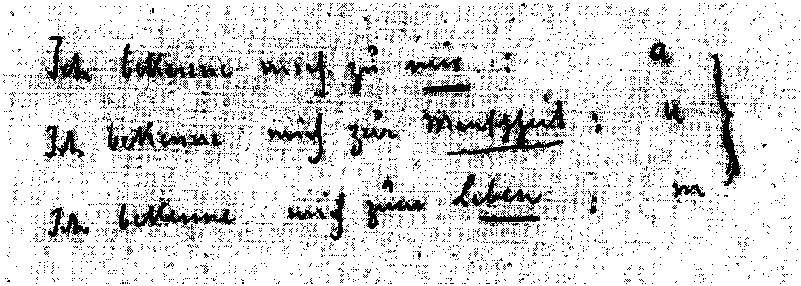 Ich bekenne mich zu mir : a
Ich bekenne mich zur Menschheit : u
Ich bekenne mich zum Leben : m